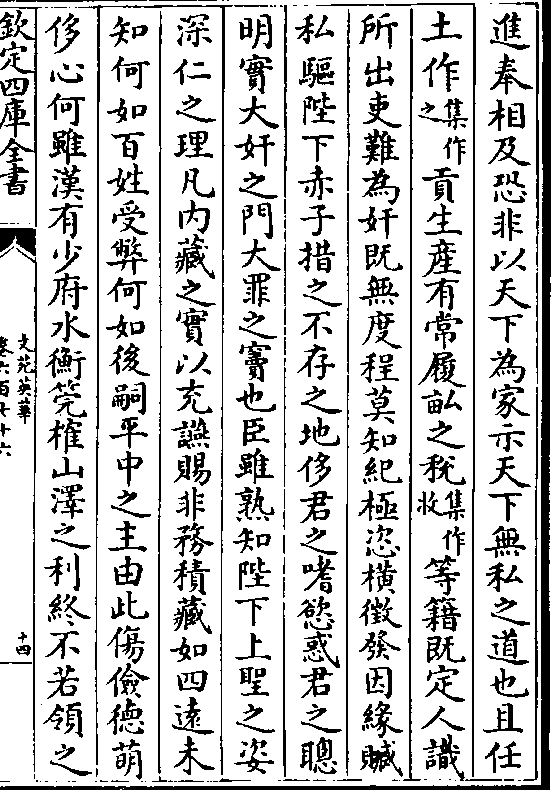 進奉相及恐非以天下為家示天下無私之道也且任
土作集作之貢生産有常履畝之稅集作收等籍既定人識
所出吏難為奸既無度程莫知紀極恣橫徵發因緣贓
私驅陛下赤子措之不存之地侈君之嗜慾惑君之聰
明實大奸之門大罪之竇也臣雖熟知陛下上聖之姿
深仁之理凡内藏之實以充讌賜非務積藏如四遠未
知何如百姓受弊何如後嗣平中之主由此傷儉德萌
侈心何雖漢有少府水衡筦榷山澤之利終不若領之
欽定四庫全書
文苑英華
卷六百廿十六
十四